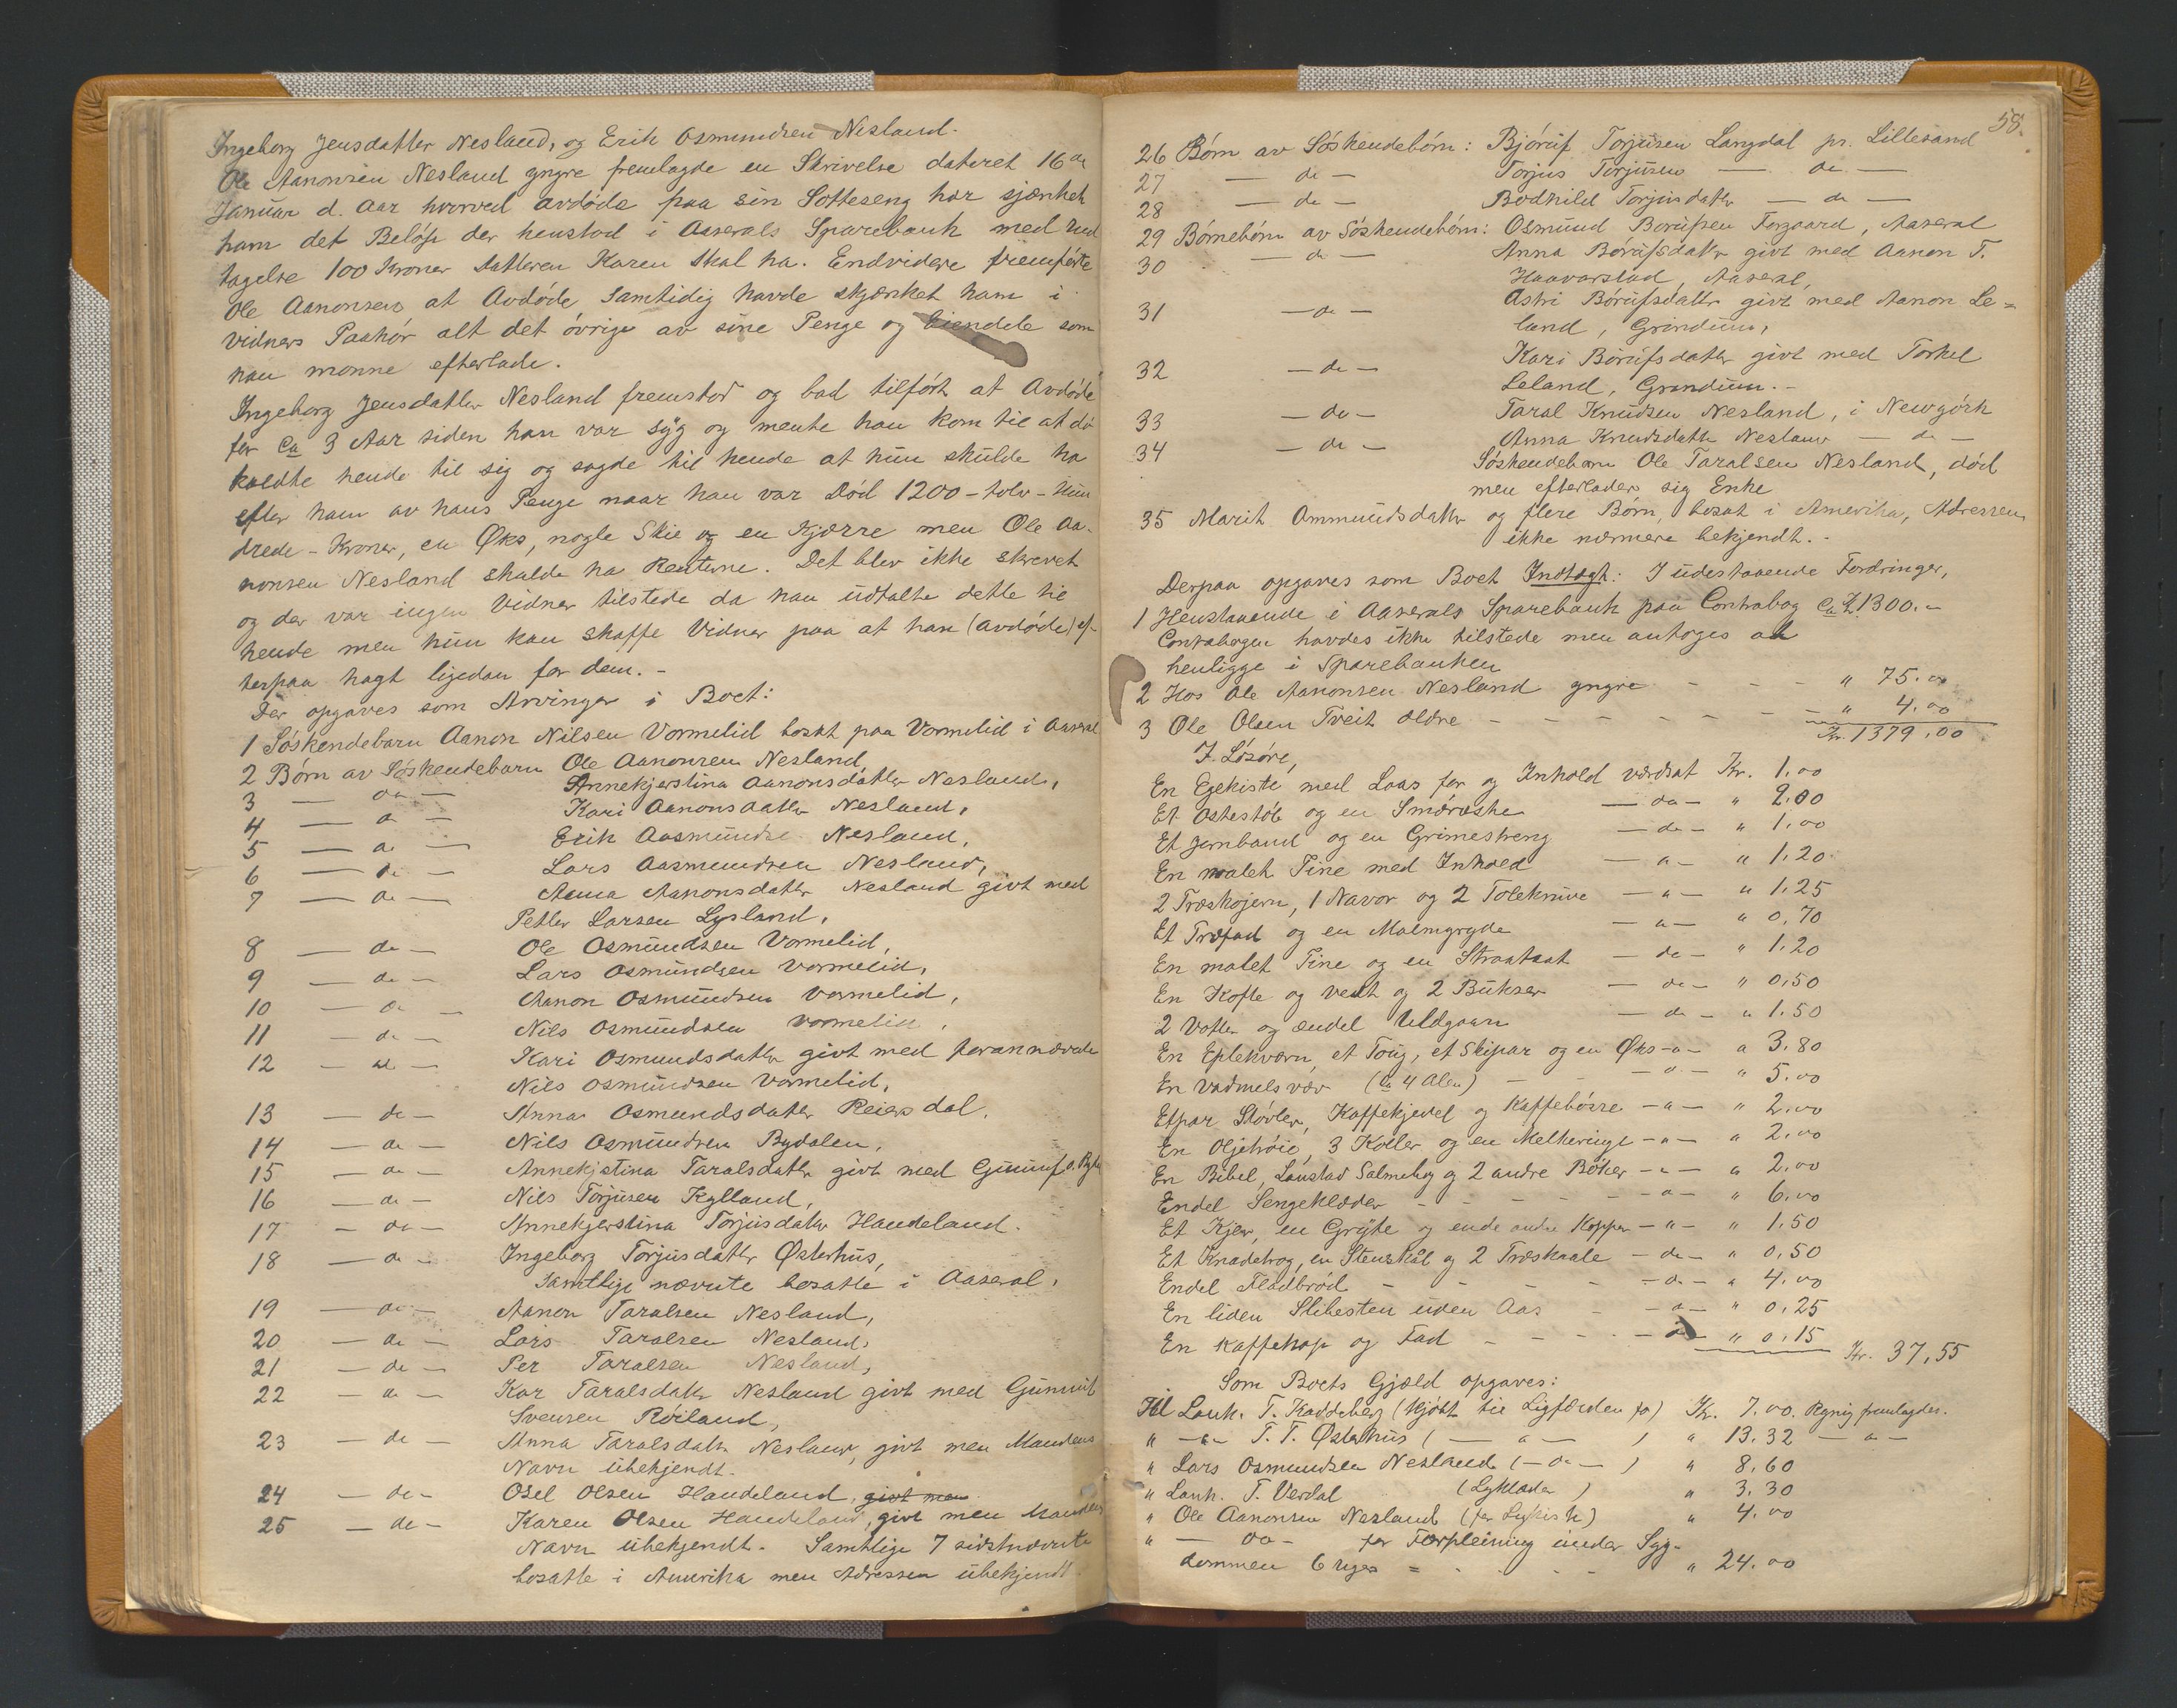 Ingeborg Jensdatter Nesland, og Erik Osmundsen Nesland.
Ole Aanonsen Nesland yngre fremlagde en Skrivelse dateret 16de
Januar d. Aar hvorved avdøde paa sin Sotteseng har sjænket
ham det Beløp der henstod i Aaserals Sparebank med und
tagelse 100 Kroner Datteren Karen skal ha. Endvidere fremførte
Ole Aanonsen at Avdøde samtidig havde skjænket ham i
vidners Paahør alt det øvrige av sine Penge og Eiendele som
han monne efterlade.
Ingeborg Jensdatter Nesland fremstod og bad tilført at Avdøde
for ca 3 Aar siden han var syg og mente han kom til at dø
kaldte hende til sig og sagde til hende at hun skulde ha
efter ham av hans Penge naar han var Død 1200 - tolv - Hun
drede - Kroner, en Øks, nogle Skie og en Kjærre men Ole Aa-
nonsen Nesland skulde ha Renterne. Det blev ikke skrevet
og der var ingen Vidner tilstede da han udtalte dette til
hende men hun kan skaffe Vidner paa at han (avdøde) ef-
terpaa hagt ligedan for dem. -
Der opgaves som Arvinger i Boet:
1 Søskendebarn Aanon Nilsen Vormelid bosat paa Vormelid i Aaseral
2 Børn av Søskendebarn Ole Aanonsen Nesland,
3 — do — Annekjerstina Aanonsdatter Nesland,
4 — do — Kari Aanonsdatter Nesland,
5 — do — Erik Aasmundse Nesland,
6 — do — Lars Aasmundsen Nesland,
7 — do — Anna Aanonsdatter Nesland givt med
Petter Larsen Lysland,
8 — do — Ole Osmundsen Vormelid,
9 — do — Lars Osmundsen Vormelid,
10 — do — Aanon Osmundsen Vormelid,
11 — do — Nils Osmundsen Vormelid,
12 — do — Kari Osmundsdatter givt med forannævnte
Nils Osmundsen Vormelid,
13 — do — Anna Osmundsdatter Reiersdal.
14 — do — Nils Osmundsen Bydalen,
15 — do — Annekjstina Taralsdatter givt med Gunuf O.
16 — do — Nils Torjusen Kylland,
17 — do — Annekjerstina Torjusdatter Haudeland.
18 — do — Ingeborg Torjusdatter Østerhus,
Samtlige nævnte bosatte i Aaseral,
19 — do — Aanon Taralsen Nesland,
20 — do — Lars Taralsen Nesland,
21 — do — Per Taralsen Nesland,
22 — do — Kar Taralsdatter Nesland givt med Gunnuf
Svensen Røiland,
23 — do — Anna Taralsdatter Nesland, givt men Mandens
Navn ubekjendt.
24 — do — Osel Olsen Haudeland, givt men
25 — do — Karen Olsen Haudeland, givt men Mandens
Navn ubekjendt. Samtlige 7 sidstnævnte
bosatte i Amerika men Adressen ubekjendt.
58.
26 Børn av Søskendebørn: Bjøruf Torjusen Langdal pr. Lillesand
27 — do — Torjus Torjusen — do —
28 — do — Bodhild Torjusdatter — do —
29 Børnebørn av Søskendebørn: Osmund Borufsen Forgaard, Aaseral
30 — do — Anna Børufsdatter givt med Aanon T.
Haavorstad, Aaseral,
31 — do — Astri Børufsdatter givt med Aanon Le=
land, Grindum,
32 — do — Kari Børufsdatter givt med Torkel
Leland, Grindum. -
33 — do — Taral Knudsen Nesland, i Newyórk
34 — do — Anna Knudsdatter Nesland — do —
Søskendebarn Ole Taralsen Nesland, død
men efterlader sig Enke
35 Marit Ammundsdatter og flere Børn, bosat i Amerika, Adressen
ikke nærmere bekjendt. -
Derpaa opgaves som Boet Indtægt: I udestaaende Fordringer,
1 Henstaaende i Aaserals Sparebank paa Contrabog ca K. 1300. -
Contrabogen havdes ikke tilstede men antoges at
henligge i Sparebanken
2 Hos Ole Aanonsen Nesland yngre - - - " 75.00
3 Ole Olsen Tveit ældre - - - - - " 4.00
Kr. 1379.00
I. Løsøre,
En Egekiste med Laas for og Inhold værdsat Kr. 1.00
Et Ostestøb og en Smøræske — do — " 2.00
Et Jernband og en Grimestreng — do — " 1.00
En malet Tine med Inhold — " — " 1.20
2 Træskojern, 1 Navor og 2 Toleknive — " — " 1.25
Et Træfad og en Malmgryde — " — " 0.70
En malet Tine og en Straahat — do — " 1.20
En Kofte og vest og 2 Bukser — do — " 0.50
2 Votter og endel Uldgarn — do — " 1.50
En Eplekværn, et Toug, et Skipar og en Øks — " — " 3.80
En Vadmelsvæv (ca 4 Alen) — " — " 5.00
Etpar Støvler, Kaffekjedel og Kaffebøsse — " — " 2.00
En Oljetrøie, 3 Koller og en Melkeringe — " — " 2.00
En Bibel, Lanstad Salmebog og 2 andre Bøker — " — " 2.00
Endel Sengeklæder - - - — " — " 6.00
Et Kjer, en Gryte og ende andre Kopper — " — " 1.50
Et Knadetrog, en Stenskål og 2 Træskaale — do — " 0.50
Endel Fladbrød - - - — do — " 4.00
En liden Slibesten uden Aas - — " — " 0.25
En Kaffekop og Fad - - - — do — " 0.15
Kr. 37,55
Som Boets Gjæld opgaves:
Til Lank. T. Kaddeberg (kjøbt til Ligfærden for) Kr. 7.00. Regnig fremlagdes.
" — " — T. T. Østerhus ( — " — ) " 13.32 — " —
" Lars Osmundsen Nesland ( — do — ) " 8.60
" Lank. T. Verdal (Ligklæder) " 3.30
" Ole Aanonsen Nesland (for Ligkiste) " 4.00
" — do — for Forpleining under Syg-
dommen 6 uger = - - " 24.00